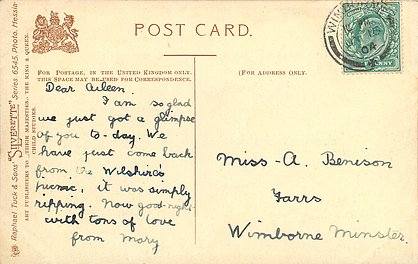 POST CARD.
FOR POSTAGE, IN THE UNITED KINGDOM ONLY,
THIS SPACE MAY BE USED FOR CORRESPONDENCE.
(FOR ADDRESS ONLY.)
Raphael Tuck & Sons' "SILVERETTE" Series 6545. Photo. Messia
ART PUBLISHERS TO THEIR MAJESTIES THE KING & QUEEN.
CHILD STUDIES.
Dear Aileen.
I am so glad
we just got a glimpse
of you to-day. We
have just come back
from the Wilshire's
picnic, it was simply
ripping. Now good-night
with tons of love
from Mary
Miss A. Benison
Farrs
Wimborne Minster.
04
PENNY